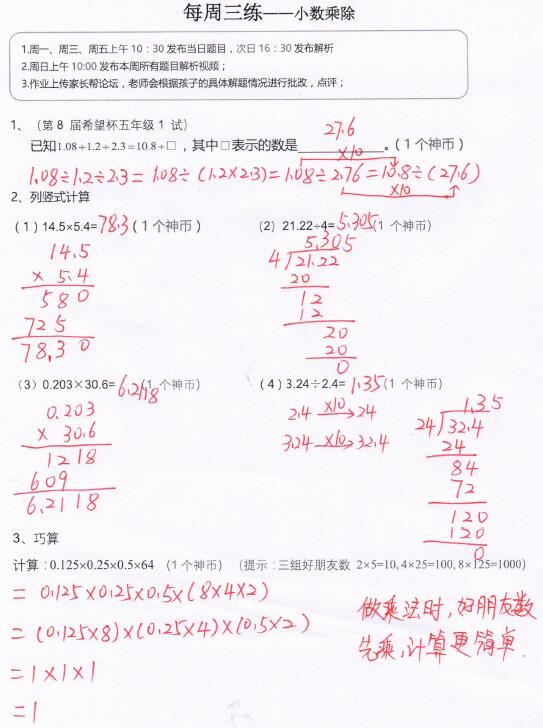 每周三练——小数乘除
1.周一、周三、周五上午10：30发布当日题目，次日16：30发布解析
2.周日上午10:00发布本周所有题目解析视频；
3.作业上传家长帮论坛，老师会根据孩子的具体解题情况进行批改，点评；
1、（第8届希望杯五年级1试）
27.6
已知1.08÷1.2÷2.3=10.8÷□，其中□表示的数是____________。（1个神币）
×10
1.08÷1.2÷2.3=1.08÷(1.2×2.3)=1.08÷2.76=10.8÷(27.6)
×10
2、列竖式计算
（1）14.5×5.4=78.3（1个神币）
14.5
× 5.4
580
725
78.30
（2）21.22÷4=5.305（1个神币）
5.305
4 21.22
20
12
12
20
20
0
（3）0.203×30.6=6.2118（1个神币）
0.203
× 30.6
1218
609
6.2118
（4）3.24÷2.4=1.35（1个神币）
2.4 ×10→24
3.24 ×10→32.4
1.35
24 32.4
24
84
72
120
120
0
3、巧算
计算：0.125×0.25×0.5×64 （1个神币）（提示：三组好朋友数 2×5=10,4×25=100,8×125=1000）
=0.125×0.25×0.5×(8×4×2)
=(0.125×8)×(0.25×4)×(0.5×2)
=1×1×1
=1
做乘法时,好朋友数
先乘,计算更简单.